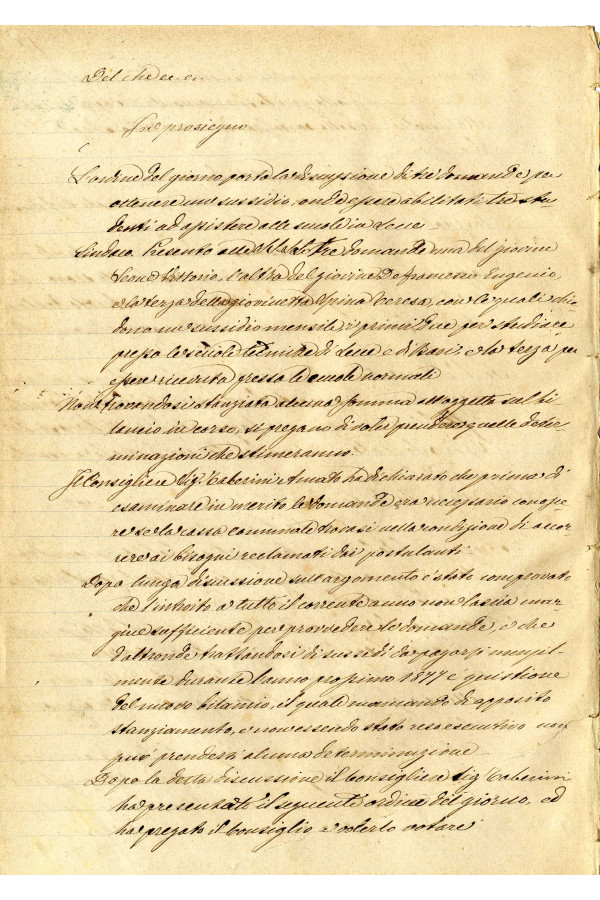 Del che ec. ec.
In prosieguo
L'ordine del giorno porta la discussione di tre domande per
ottenere un sussidio, onde essere abilitati tre stu
denti ad assistere alle scuole in Lecce
Sindaco. Presento alle SS. LL. tre domande una del giovine
Leone Vittorio, l'altra del giovine De francesco Eugenio,
e la terza della giovinetta Spina Teresa, con le quali chie
dono un sussidio mensile, i primi due per studiare
presso le scuole tecniche di Lecce e di Bari, e la terza per
essere ricevuta presso le scuole normali
Non trovandosi stanziata alcuna somma all'oggetto sul bi
lancio in corso, si pregano di voler prendere quelle deter
minazioni che stimeranno.
Il Consigliere Sig. Taberini Amato ha dichiarato che prima di
esaminare in merito le domande era necessario conosce
re se la cassa comunale trovasi nella condizione di accor
rere ai bisogni reclamati dai postulanti
Dopo lunga discussione sull'argomento è stato comprovato
che l'introito a tutto il corrente anno non lascia mar
gine sufficiente per provvedere le domande, e che
d'altronde trattandosi di sussidi da pagarsi mensil-
mente durante l'anno prossimo 1877 è quistione
del nuovo bilancio, il quale mancando di apposito
stanziamento, e non essendo stato reso esecutivo non
può prendersi alcuna determinazione
Dopo la detta discussione il consigliere Sig. Taberini
ha presentato il seguente ordine del giorno, ed
ha pregato il Consiglio a volerlo votare